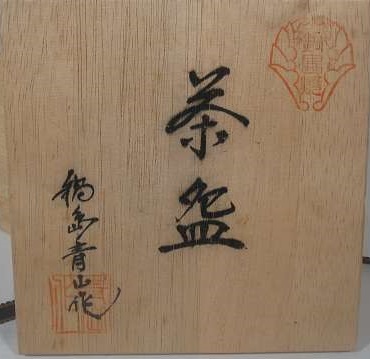 茶盌
鍋島青山作